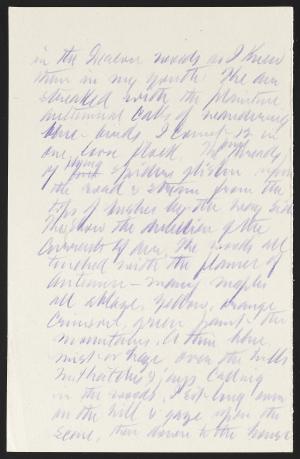 in the Deacon woods as I knew
them in my youth. The air
streaked with the plaintive
autumnal calls of wandering
blue-birds, I count 12 in
one, loose flock. The long threads
of flying spiders glisten upon
the road & stream from the
tops of bushes by the way side
They show the direction of the
currents of air. The woods all
touched with the flames of
autumn - many maples
all ablaze, yellow, orange
crimson, green paint the
mountains. A thin blue
mist or haze over the hills
Nuthatches & jays calling
in the woods. I sit long
on the hill & gaze upon the
scene, then down to the house